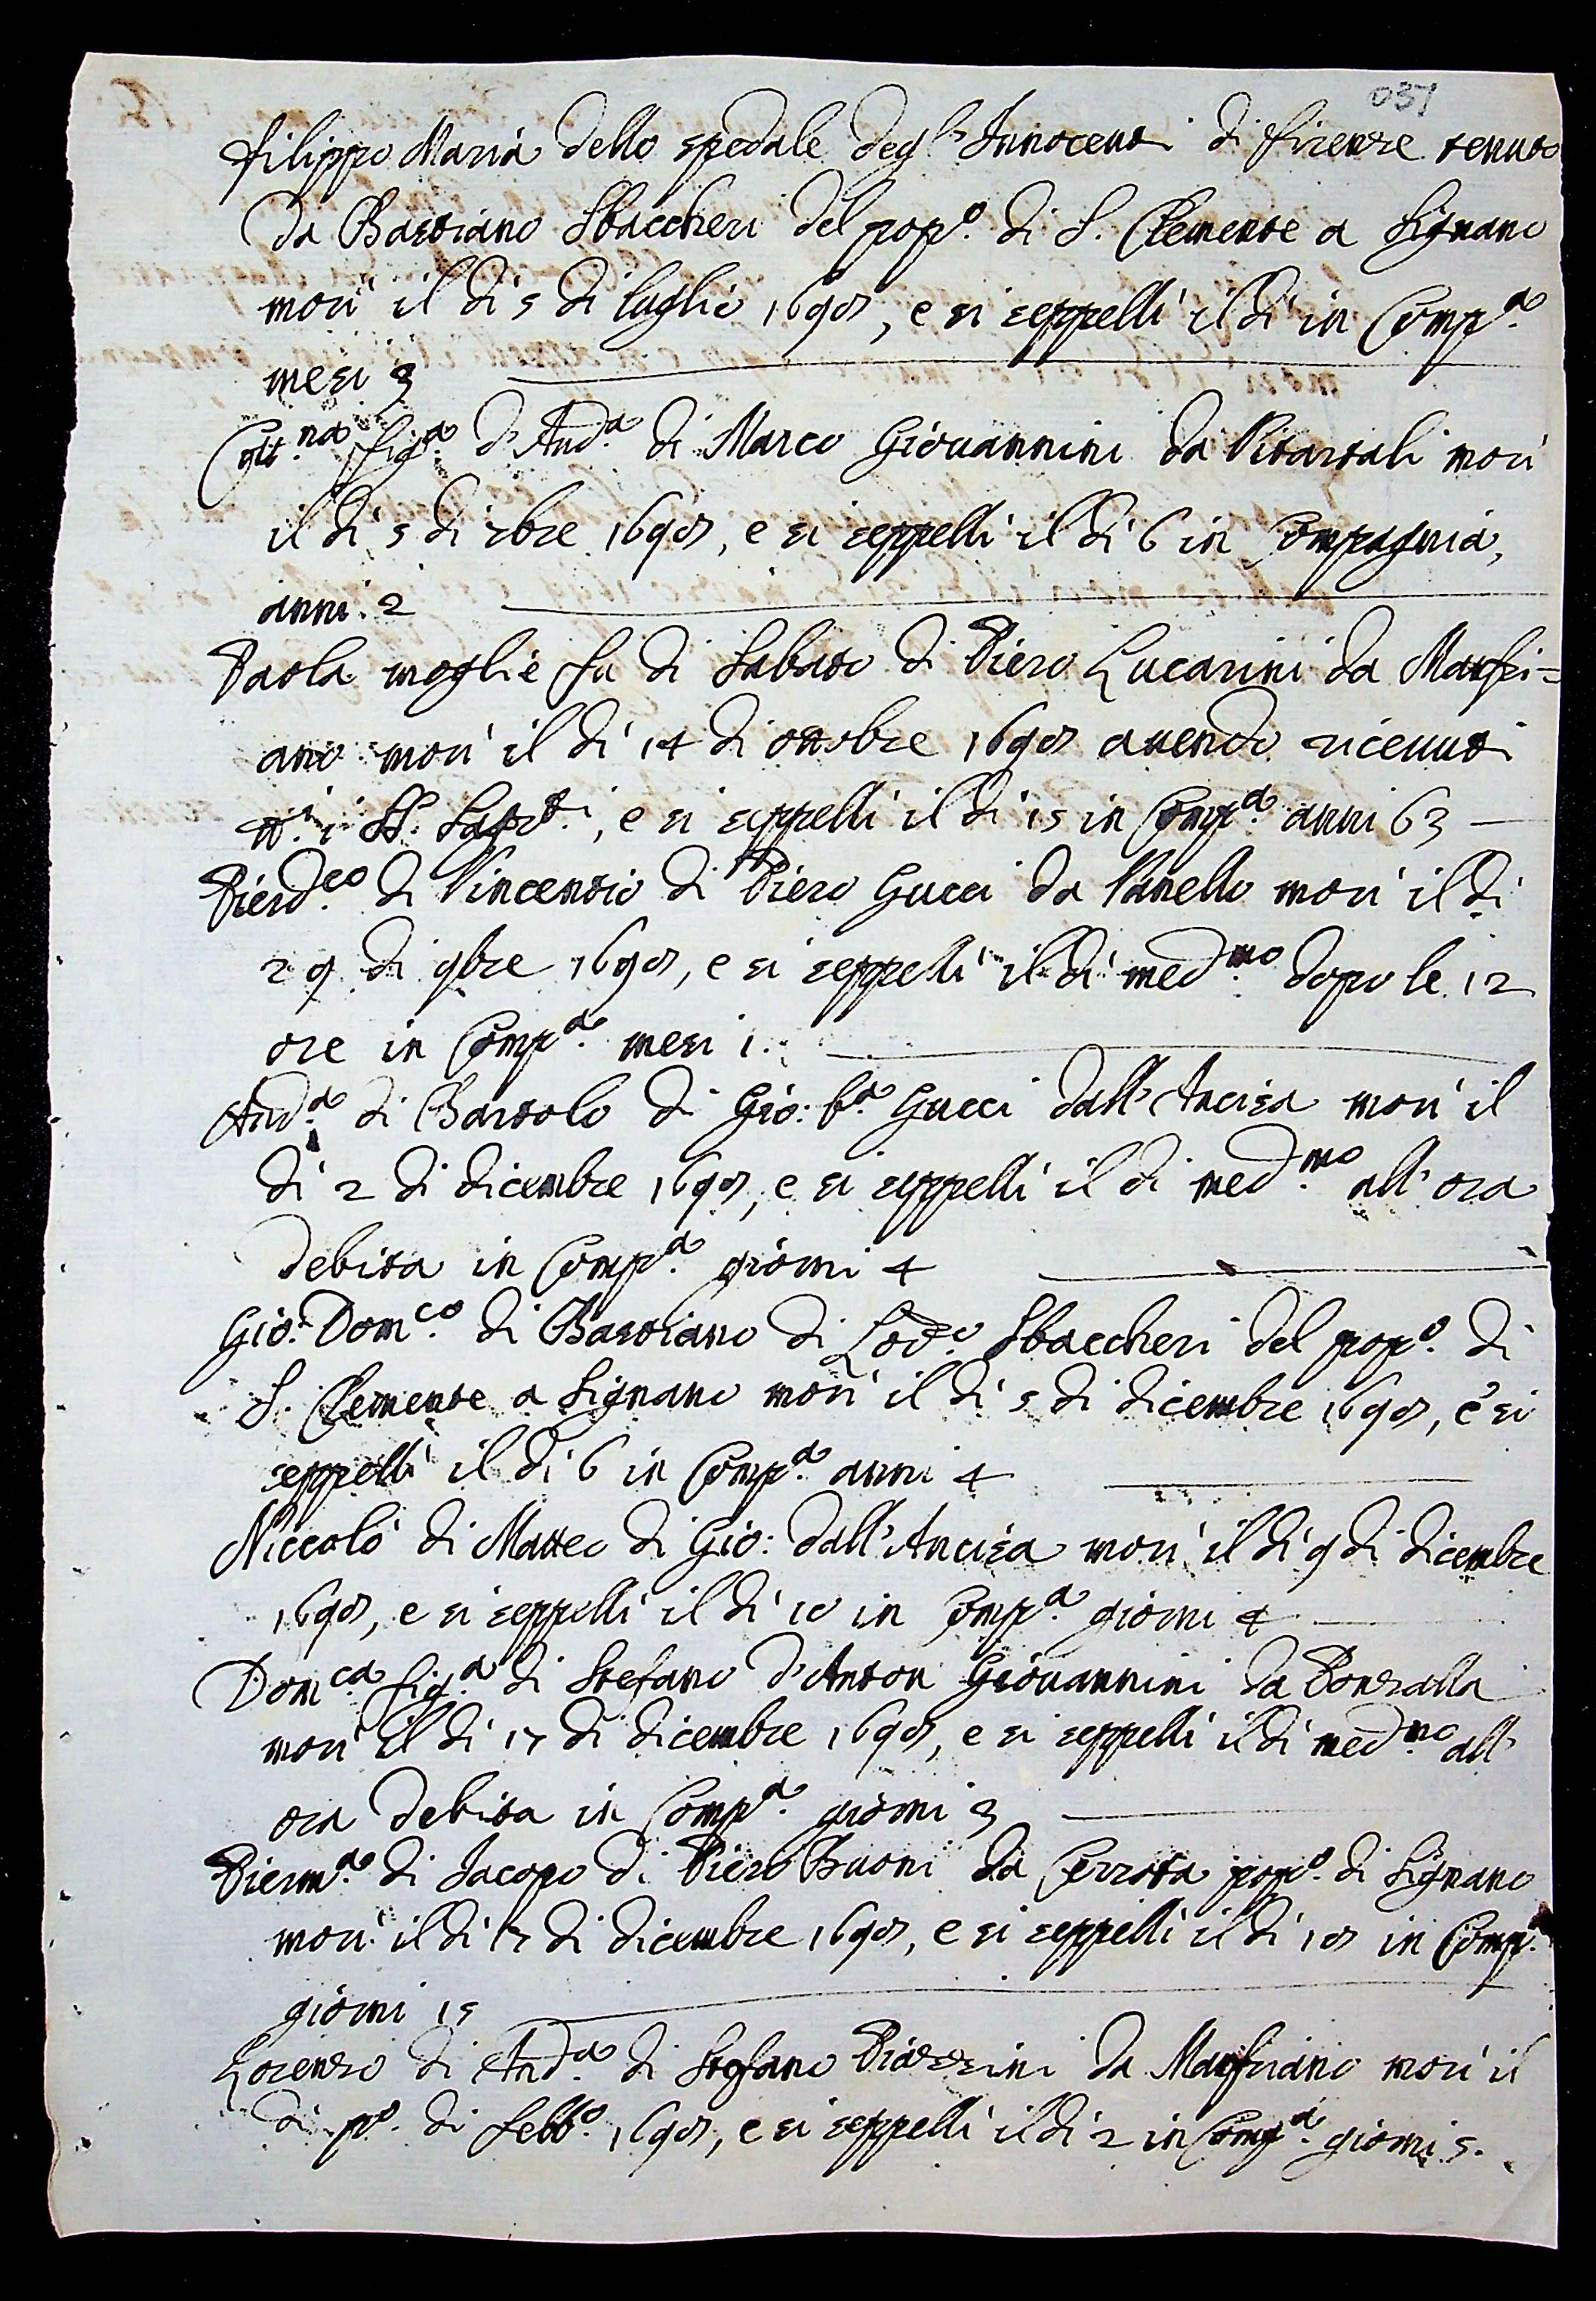 037
Filippo Maria dello spedale degl'Innocenti di Firenze tenuto
da Bastiano Sbaccheri del pop.º di S. Clemente a Signano
morì il dì 5 di luglio 1698, e si seppellì il dì in Comp.ª
mesi 3
Catt.na fig.ª d'And.ª di Marco Giovannini da Vitartali morì
il dì 5 di 7bre 1698, e si seppellì il dì 6 in Compagnia,
anni 2
Paola moglie fu di Sabato di Piero Lucarini da Manfri=
ano morì il dì 14 di ottobre 1698 avendo ricevuti
tt.i i SS. Sagr.ti, e si seppellì il dì 15 in Comp.ª anni 63
Pierd.co di Vincentio di Piero Gucci da Vanello morì il dì
29 di 9bre 1698, e si seppellì il dì med.mo dopo le 12
ore in Comp.ª mesi 1.
And.ª di Bartolo di Gio: b.ª Gucci dall'Ancisa morì il
dì 2 di dicembre 1698, e si seppellì il dì med.mo all'ora
debita in Comp.ª giorni 4
Gio: Dom.co di Bastiano di Lod.º Sbaccheri del pop.º di
S. Clemente a Signano morì il dì 5 di dicembre 1698, e si
seppellì il dì 6 in Comp.ª anni 4
Niccolò di Matteo di Gio: dall'Ancisa morì il dì 9 di dicembre
1698, e si seppellì il dì 10 in Comp.ª giorni 4
Dom.ca fig.ª di Stefano d'Anton Giovannini da Ponzalla
morì il dì 17 di dicembre 1698, e si seppellì il dì med.mo all'
ora debita in Comp.ª giorni 3
Pierm.ª di Jacopo di Piero Buoni da Cerrota pop.º di Signano
morì il dì 17 di dicembre 1698, e si seppellì il dì 18 in Comp.ª
giorni 15
Lorenzo di And.ª di Stefano Piazzini da Manfriano morì il
dì p.º di febb.º 1698, e si seppellì il dì 2 in Comp.ª giorni 5.